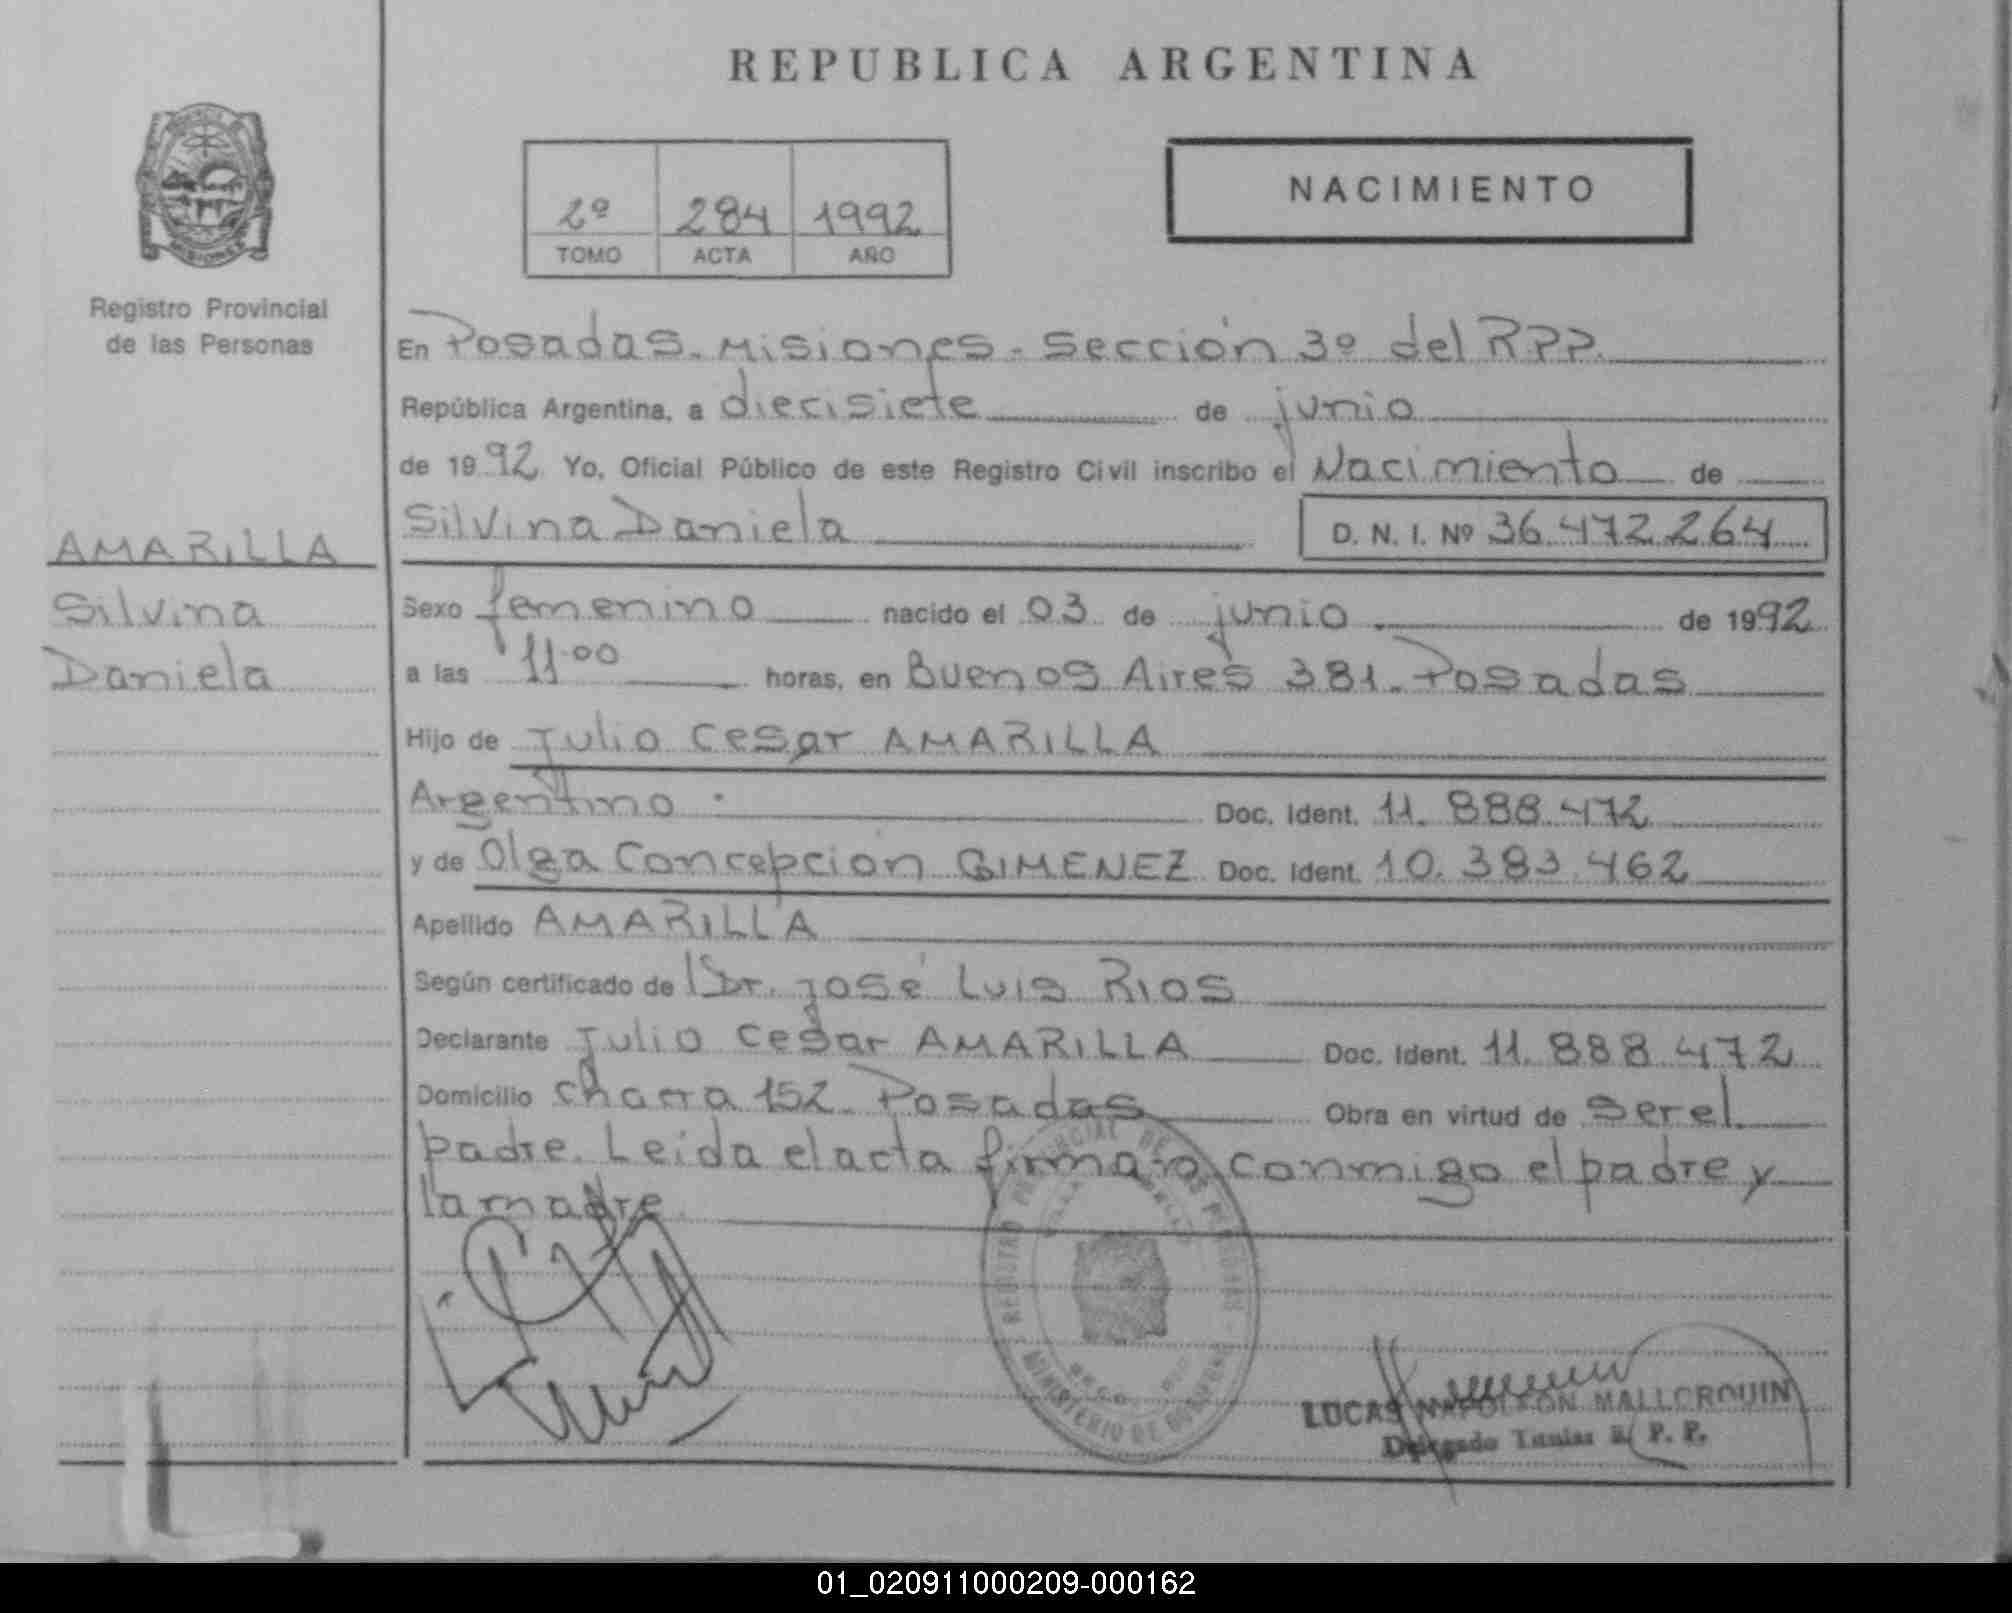 REPUBLICA ARGENTINA
2º 284 1992
TOMO ACTA AÑO
NACIMIENTO
Registro Provincial
de las Personas
AMARILLA
Silvina
Daniela
En Posadas. Misiones. Sección 3º del RPP.
República Argentina, a diecisiete de junio
de 1992 Yo, Oficial Público de este Registro Civil inscribo el Nacimiento de
Silvina Daniela D. N. I. Nº 36.472.264
Sexo femenino nacido el 03 de junio de 1992
a las 11.00 horas, en Buenos Aires 381. Posadas
Hijo de Julio Cesar AMARILLA
Argentino Doc. Ident. 11.888.472
y de Olga Concepcion GIMENEZ Doc. Ident. 10.383.462
Apellido AMARILLA
Según certificado de Dr. José Luis RIOS
Declarante Julio Cesar AMARILLA Doc. Ident. 11.888.472
Domicilio Chacra 152. Posadas Obra en virtud de ser el
padre. Leida el acta firma conmigo el padre y
la madre.
REGISTRO PROVINCIAL DE LAS PERSONAS
MINISTERIO DE GOBIERNO
LUCAS NAPOLEON
Delegado R. P. P.
01_020911000209-000162